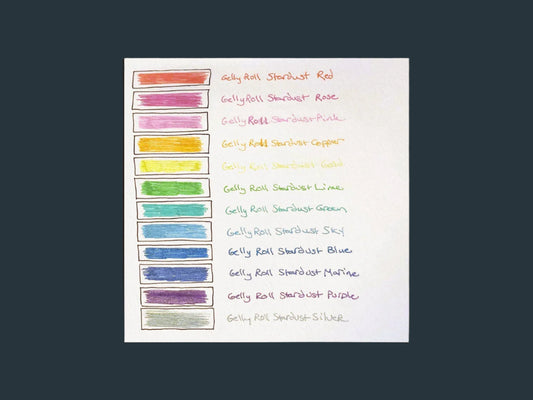 Gelly Roll Stardust Red
Gelly Roll Stardust Rose
Gelly Roll Stardust Pink
Gelly Roll Stardust Copper
Gelly Roll Stardust Gold
Gelly Roll Stardust Lime
Gelly Roll Stardust Green
Gelly Roll Stardust Sky
Gelly Roll Stardust Blue
Gelly Roll Stardust Marine
Gelly Roll Stardust Purple
Gelly Roll Stardust Silver